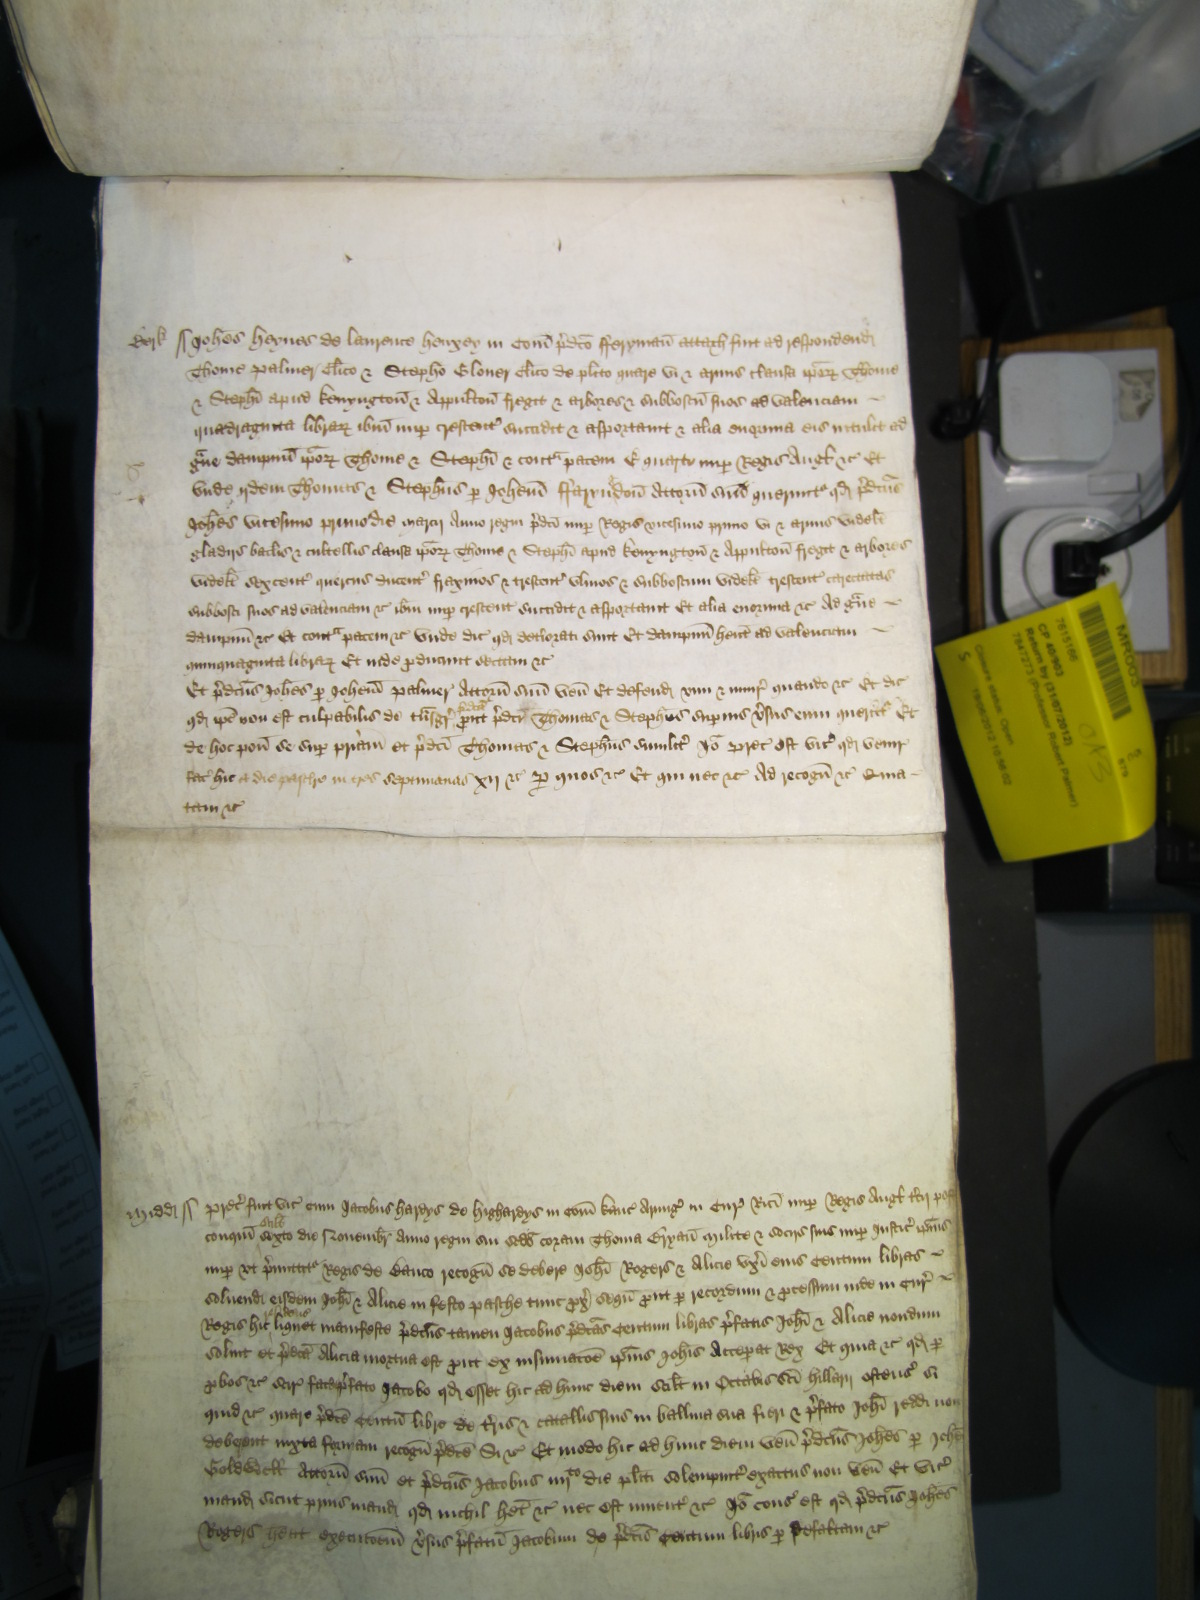 Berk ss Johes Heynes de laurence henxey in Com p̄dco fferyman attach fuit ad respondend
Thome Palmer Clico & Stepho Gloner Clico de plito quare vi & armis clausa ipoꝝ Thome
& Stephi apud Kenyngton & Appulton fregit & arbores & subboscu suos ad valenciam
quadraginta libraꝝ ibm nup crescent succidit & asportauit & alia enormia eis intulit ad
g̃ue dampnu ipoꝝ Thome & Stephi & contra pacem E quarti nup Regis Angl &c Et
vnde ijdem Thomas & Stephus p Johem ffaryndon Attorn suu querunt qd p̄dcus
Johes vicesimo primo die marcij Anno regni p̄dci nup Regis vicesimo primo vi & armis videlt
gladijs baclis & cultellis clausa ipoꝝ Thome & Stephi apud Kenyngton & Appulton fregit & arbores
videlt sexcent quercus ducent fraxinos & trescent vlmos & subboscum videlt trescent carectatas
subbosci suos ad valenciam &c ibm nup crescent succidit & asportauit Et alia enormia &c Ad g̃ue
dampnu &c Et contra pacem &c vnde dic qd deteriorati sunt Et dampnu hent ad valenciam
quinquaginta libraꝝ Et inde pducunt sectam &c
Et p̄dcus Johes p Johem Palmer Attorn suu ven Et defend vim & iniur quando &c Et dic
qd ipe non est culpabilis de tnsgr p̄dca prout p̄dci Thomas & Stephus supius vsus eum querunt Et
de hoc pon se sup priam et p̄dci Thomas & Stephus similit Io prec est vic qd venir
fac hic a die pasche in tres septimanas xij &c p quos &c Et qui nec &c Ad recogn &c Quia
tam &c
Midd ss Prec fuit vic cum Jacobus hardys de highardys in Com Kanc Armig in Cur Rici nup Regis Angl tcij post
conqum sexto die Nouembr Anno regni sui scdo coram Thoma Bryan milite & socijs suis nup Justic ipius
nup Regis de Banco recogn se debere Johi Rogers & Alicie vxi eius Centum libras
soluend eisdem Johi & Alicie in festo pasche tunc px sequ prout p recordum & processum inde in Cur
Regis hic liquet manifeste p̄dcus tamen Jacobus p̄dcas Centum libras p̄fatis Johi & Alicie nondum
soluit et p̄dca Alicia mortua est prout ex insinuacoe ipius Johis Accepat Rex Et quia &c qd p
pbos &c scir fac p̄fato Jacobo qd esset hic ad hunc diem scilt in Octabis sci hillarij ostens si
quid &c quare p̄dce Centu libre de tris & catallis suis in balliua sua fieri & p̄fato Johi reddi non
debeant iuxta formam recogn p̄dce Si &c Et modo hic ad hunc diem ven p̄dcus Johes p Johem
Goldwell Attorn suu et p̄dcus Jacobus iiijto die pliti solempnit exactus non ven Et vic
mand sicut prius mand qd nichil het &c nec est inuent &c Io cons est qd p̄dcus Johes
Rogers heat execucoem vsus p̄fatu Jacobum de p̄dcis Centum libris p defaltam &c
MR003
7615166
CP 40/903
Return by (31/07/2012)
7647273 (Professor Robert Palmer)
Closure status: Open
19/06/2012 10:56:02
S